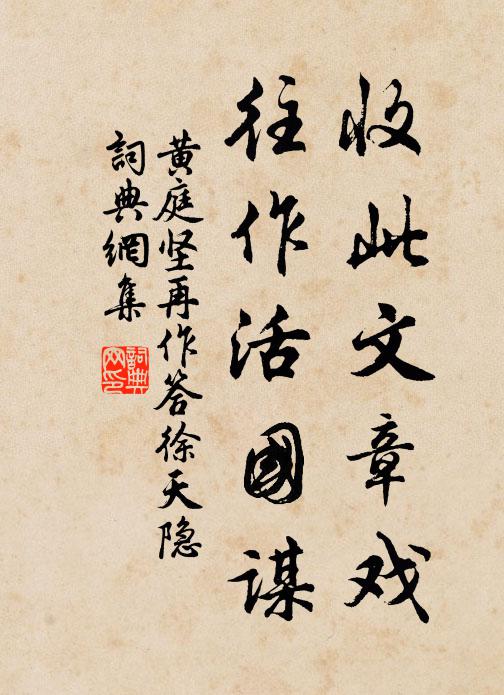 收此文章戏
往作活國谋
黄庭坚再作答徐天隐
詞典網集
詞典网印